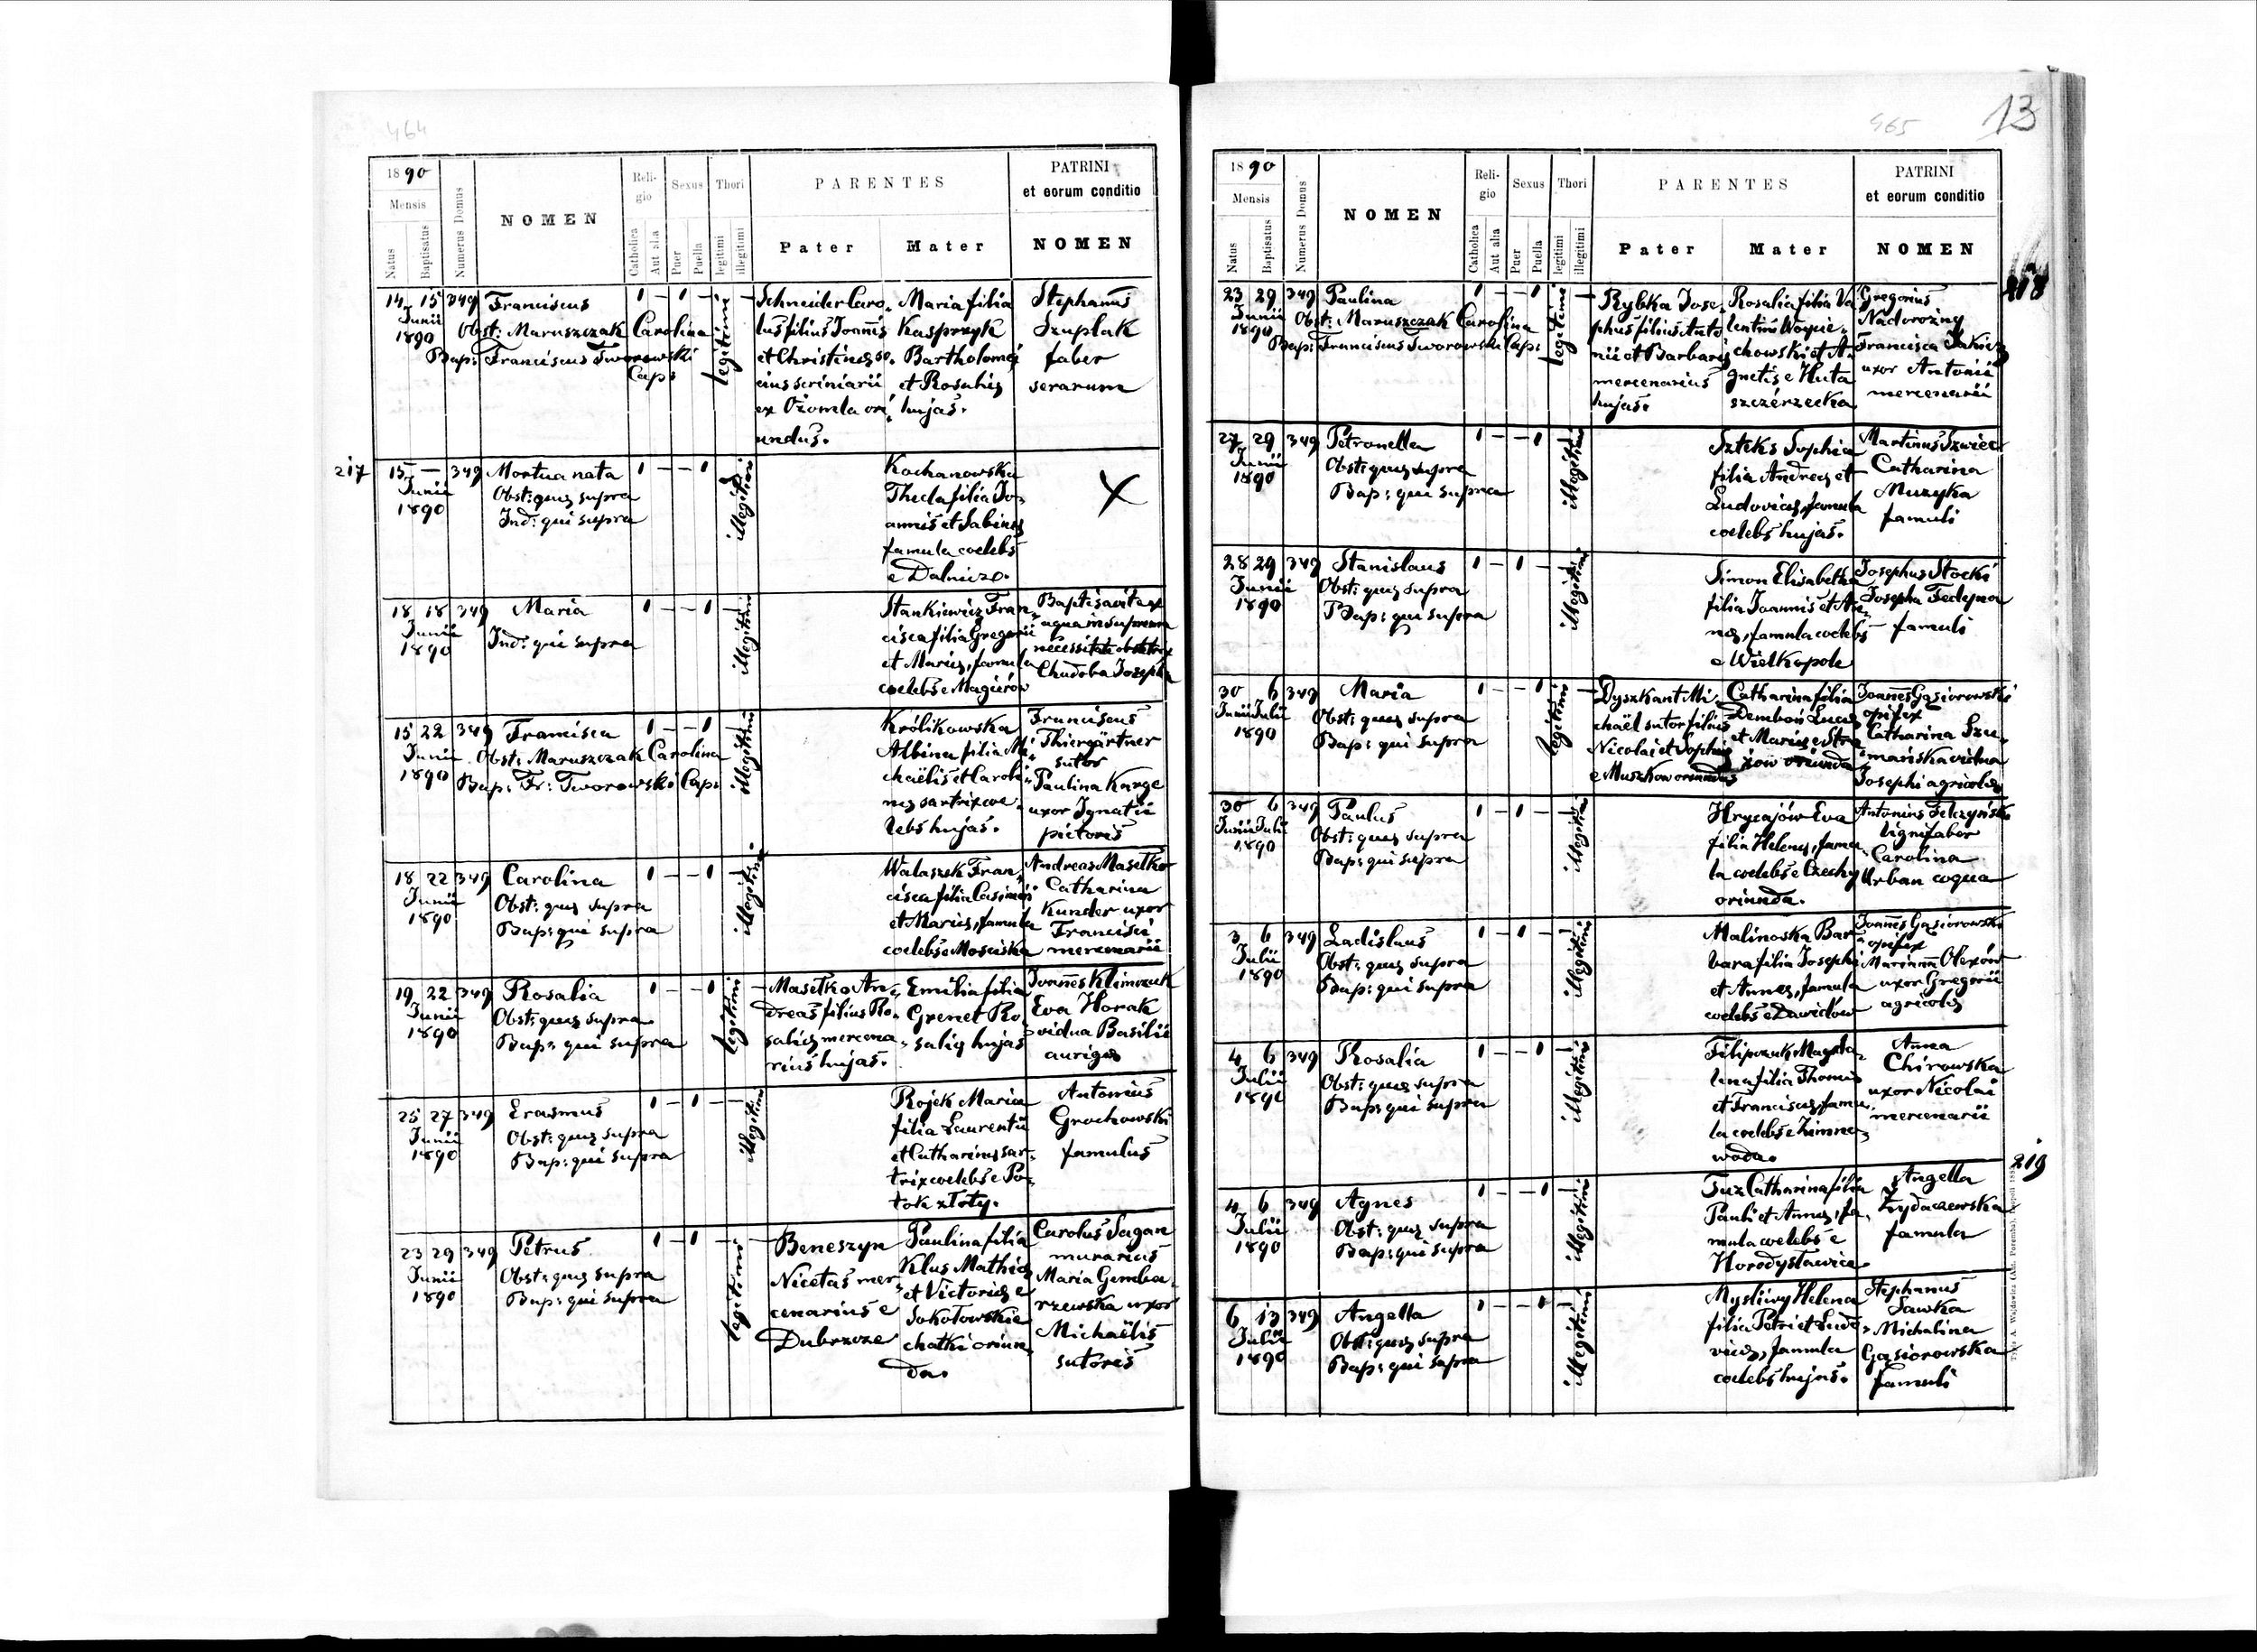 464
1890
Mensis
Natus
Baptisatus
Numerus Domus
NOMEN
Religio
Catholica
Aut alia
Sexus
Puer
Puella
Thori
legitimi
illegitimi
PARENTES
Pater
Mater
PATRINI
et eorum conditio
NOMEN
14 15 349 Franciscus 1 – 1 – legitimi –
Junii
1890
Obst: Maruszczak Carolina
Bap: Franciscus Tworowski
Cap:
Schneider Caro-
lus filius Joannis
et Christinæ so-
cius scriniarii
ex Ożomla ori-
undus.
Maria filia
Kasprzyk
Bartholomæi
et Rosaliæ
hujas.
Stephanus
Szuplak
faber
serarum
217
15 – 349 Mortua nata 1 – – 1 – illegitimi
Junii
1890
Obst: quæ supra
Ind: qui supra
Kochanowska
Thecla filia Jo-
annis et Sabinæ
famula coelebs
e Dalnicz.
X
18 18 349 Maria 1 – – 1 – illegitimi
Junii
1890
Ind: qui supra
Stankiewicz Fran-
cisca filia Gregorii
et Mariæ, famula
coelebs e Magierów
Baptisavit ex
aqua in suprema
necessitate obstetrix
Chudoba Josepha
15 22 349 Francisca 1 – – 1 – illegitimi
Junii
1890
Obst: Maruszczak Carolina
Bap: Fr: Tworowski Cap:
Królikowska
Albina filia Mi-
chaëlis et Caroli-
næ sartrix coe-
lebs hujas.
Franciscus
Thiergärtner
sutor
Paulina Karge
uxor Ignatii
pictoris
18 22 349 Carolina 1 – – 1 – illegitimi
Junii
1890
Obst: quæ supra
Bap: qui supra
Walaszek Fran-
cisca filia Casimiri
et Mariæ, famula
coelebs e Mosciska
Andreas Masełko
Catharina
Kunder uxor
Francisci
mercenarii
19 22 349 Rosalia 1 – – 1 legitimi –
Junii
1890
Obst: quæ supra
Bap: qui supra
Masełko An-
dreas filius Ro-
saliæ mercena-
rius hujas.
Emilia filia
Grenet Ro-
saliæ hujas
Joannes Klimczuk
Eva Horak
vidua Basilii
aurigæ
25 27 349 Erasmus 1 – 1 – – illegitimi
Junii
1890
Obst: quæ supra
Bap: qui supra
Rojek Maria
filia Laurentii
et Catharinæ sar-
trix coelebs e Po-
tok złoty.
Antonius
Grochowski
famulus
23 29 349 Petrus 1 – 1 – legitimi –
Junii
1890
Obst: quæ supra
Bap: qui supra
Beneszyn
Nicetas mer-
cenarius e
Dubrzcze
Paulina filia
Klus Mathiæ
et Victoriæ e
Sokołowskie
chatki oriun-
da.
Carolus Sagan
murarius
Maria Gemba-
rzewska uxor
Michaëlis
sutoris
465
13
1890
Mensis
Natus
Baptisatus
Numerus Domus
NOMEN
Religio
Catholica
Aut alia
Sexus
Puer
Puella
Thori
legitimi
illegitimi
PARENTES
Pater
Mater
PATRINI
et eorum conditio
NOMEN
218
23 29 349 Paulina 1 – – 1 legitimi –
Junii
1890
Obst: Maruszczak Carolina
Bap: Franciscus Tworowski Cap:
Rybka Jose-
phus filius Anto-
nii et Barbaræ
mercenarius
hujas.
Rosalia filia Va-
lentini Woycie-
chowski et A-
gnetis e Huta
szczérzecka
Gregorius
Nadorożny
Francisca Jakicz
uxor Antonii
mercenarii
27 29 349 Petronella 1 – – 1 – illegitimi
Junii
1890
Obst: quæ supra
Bap: qui supra
Szteks Sophia
filia Andreæ et
Ludovicæ, famula
coelebs hujas.
Martinus Szwiec
Catharina
Muzyka
famuli
28 29 349 Stanislaus 1 – 1 – – illegitimi
Junii
1890
Obst: quæ supra
Bap: qui supra
Simon Elisabetha
filia Joannis et An-
næ, famula coelebs
e Wielkopole
Josephus Stocki
Josepha Fedyna
famuli
30 6 349 Maria 1 – – 1 legitimi –
Junii Julii
1890
Obst: quæ supra
Bap: qui supra
Dyszkant Mi-
chaël sutor filius
Nicolai et Sophiæ
e Muszkow oriundus
Catharina filia
Demboń Lucæ
et Mariæ e Stra-
żów oriunda
Joannes Gąsiorowski
opifex
Catharina Szu-
mańska vidua
Josephi agricolæ
30 6 349 Paulus 1 – 1 – – illegitimi
Junii Julii
1890
Obst: quæ supra
Bap: qui supra
Hrycajów Eva
filia Helenæ, famu-
la coelebs e Czechy
oriunda.
Antonius Felczyński
lignifaber
Carolina
Urban coqua
3 6 349 Ladislaus 1 – 1 – – illegitimi
Julii
1890
Obst: quæ supra
Bap: qui supra
Malinoska Bar-
bara filia Josephi
et Annæ, famula
coelebs e Dawidów
Joannes Gąsiorowski
opifex
Marianna Olexów
uxor Gregorii
agricolæ
4 6 349 Rosalia 1 – – 1 – illegitimi
Julii
1890
Obst: quæ supra
Bap: qui supra
Filipczuk Magda-
lena filia Thomæ
et Franciscæ, famu-
la coelebs e Zimna
woda.
Anna
Chirowska
uxor Nicolai
mercenarii
219
4 6 349 Agnes 1 – – 1 – illegitimi
Julii
1890
Obst: quæ supra
Bap: qui supra
Tuz Catharina filia
Pauli et Annæ, fa-
mula coelebs e
Horodysławice
Angella
Żydaczewska
famula
6 13 349 Angella 1 – – 1 – illegitimi
Julii
1890
Obst: quæ supra
Bap: qui supra
Mysliwy Helena
filia Petri et Ludo-
vicæ, famula
coelebs hujas.
Stephanus
Sawka
Michalina
Gąsiorowska
famuli